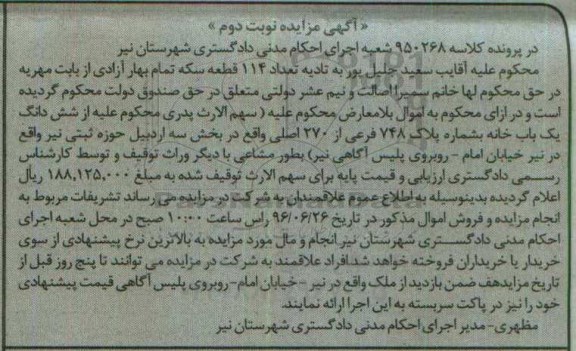 « آگهی مزایده نوبت دوم »
در پرونده کلاسه ۹۵۰۲۶۸ شعبه اجرای احکام مدنی دادگستری شهرستان نیر
محکوم علیه آقایب سعید جلیل پور به تادیه تعداد ۱۱۴ قطعه سکه تمام بهار آزادی از بابت مهریه
در حق محکوم لها خانم سمیرا اصالت و نیم عشر دولتی متعلق در حق صندوق دولت محکوم گردیده
است و در ازای محکوم به اموال بلامعارض محکوم علیه ( سهم الارث پدری محکوم علیه از شش دانگ
یک باب خانه بشماره پلاک ۷۴۸ فرعی از ۲۷۰ اصلی واقع در بخش سه اردبیل حوزه ثبتی نیر واقع
در نیر خیابان امام - روبروی پلیس آگاهی نیر) بطور مشاعی با دیگر وراث توقیف و توسط کارشناس
رسمی دادگستری ارزیابی و قیمت پایه برای سهم الارث توقیف شده به مبلغ ۱۸۸,۱۲۵,۰۰۰ ریال
اعلام گردیده بدینوسیله به اطلاع عموم علاقمندان به شرکت در مزایده می رساند تشریفات مربوط به
انجام مزایده و فروش اموال مذکور در تاریخ ۹۶/۰۶/۲۶ راس ساعت ۱۰:۰۰ صبح در محل شعبه اجرای
احکام مدنی دادگستری شهرستان نیر انجام و مال مورد مزایده به بالاترین نرخ پیشنهادی از سوی
خریدار یا خریداران فروخته خواهد شد افراد علاقمند به شرکت در مزایده می توانند تا پنج روز قبل از
تاریخ مزایدهف ضمن بازدید از ملک واقع در نیر - خیابان امام-روبروی پلیس آگاهی قیمت پیشنهادی
خود را نیز در پاکت سربسته به این اجرا ارائه نمایند.
مظهری- مدیر اجرای احکام مدنی دادگستری شهرستان نیر